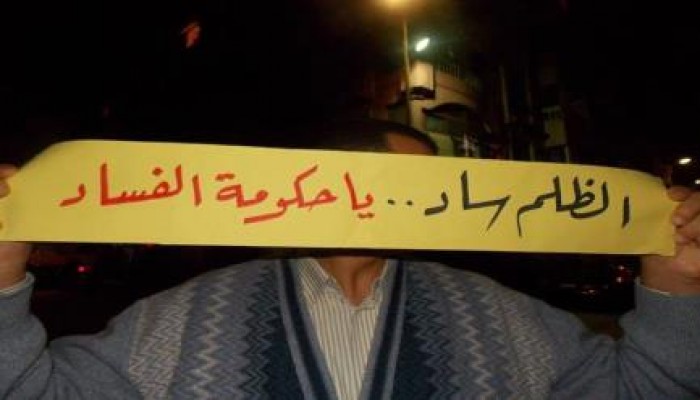 الظلم ساد.. يا حكومة الفساد